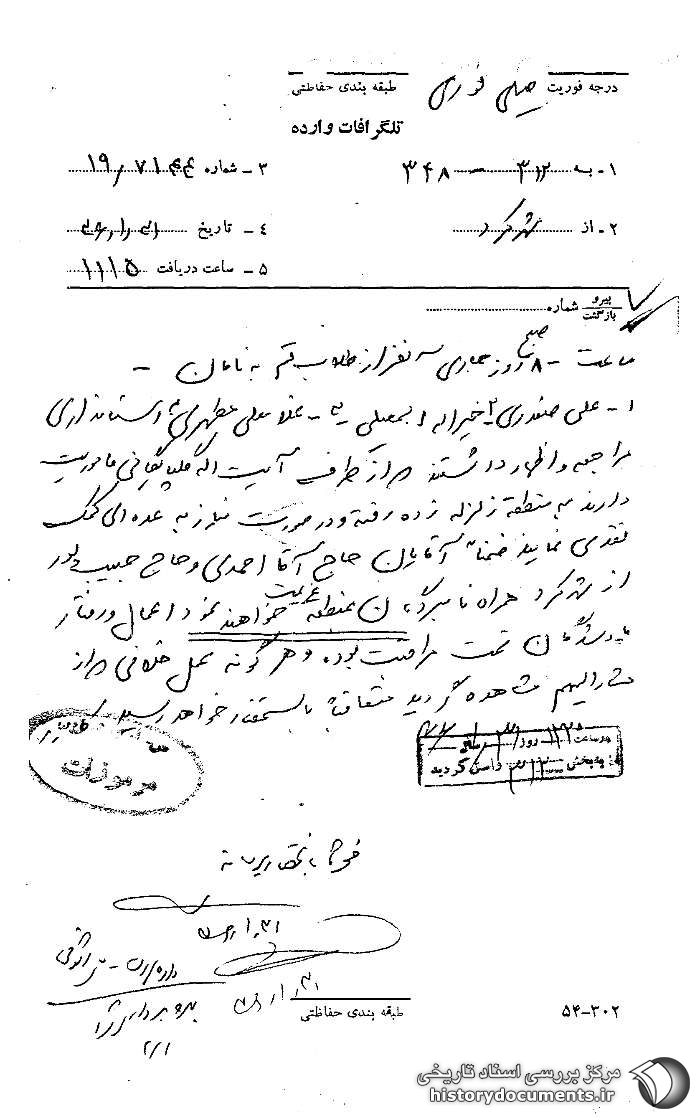 درجه فوریت خیلی فوری
طبقه بندی حفاظتی
تلگرافات وارده
۱ - به ۳۱۲ — ۳۴۸
۳ - شماره ۱۹/۷۱
۲ - از شهرکرد
۴ - تاریخ
۵ - ساعت دریافت ۱۱۱۵
پیرو
بازگشت
شماره
ساعت - ۸ صبح روز جاری سه نفر از طلاب قم به نامان -
۱ - علی صفدری ۲ - خیراله اسمعیلی ۳ - غلامعلی مطهری به استانداری
مراجعه و اظهار داشتند که از طرف آیت اله گلپایگانی ماموریت
دارند به منطقه زلزله زده رفته و در صورت نیاز به عده ای کمک
نقدی نمایند ضمناً آقایان حاج آقا احمدی و حاج حبیب پور
از شهرکرد همراه نامبردگان به منطقه عزیمت خواهند نمود اعمال و رفتار
نامبردگان تحت مراقبت بوده و هر گونه عمل خلافی که از
مشارالیهم مشاهده گردید متعاقباً باستحضار خواهد رسید
مرموزات
در ساعت روز
به بخش ۳۱۲ واصل گردید
طبقه بندی حفاظتی
۵۴-۳۰۲
مرکز بررسی اسناد تاریخی
historydocuments.ir